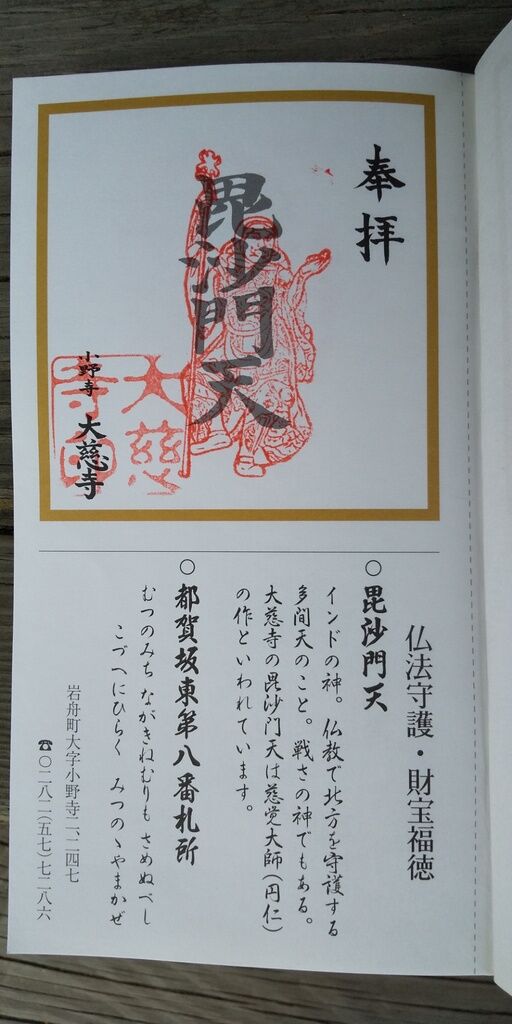 奉拝
毘沙門天
大慈
寺
小野寺 大慈寺
仏法守護・財宝福徳
○毘沙門天
インドの神。仏教で北方を守護する
多聞天のこと。戦さの神でもある。
大慈寺の毘沙門天は慈覚大師(円仁)
の作といわれています。
○都賀坂東第八番札所
むつのみち ながきねむりも さめぬべし
こづへにひらく みつのゝやまかぜ
岩舟町大字小野寺二、二四七
☎〇二八二(五七)七二八六